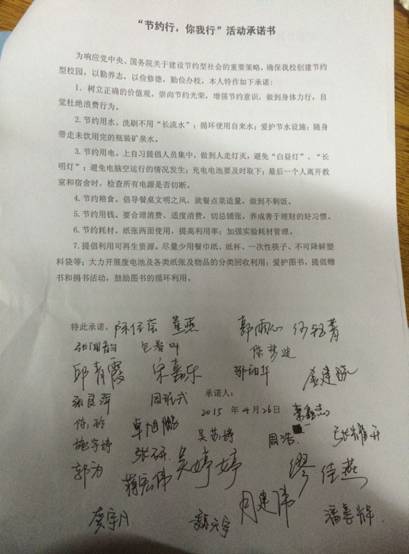 “节约行，你我行”活动承诺书
为响应党中央、国务院关于建设节约型社会的重要策略，确保我校创建节约
型校园，以勤养志，以俭修德，勤俭办校，本人特作如下承诺：
1．树立正确的价值观，崇尚节约光荣，增强节约意识，做到身体力行，自
觉杜绝浪费行为。
2.节约用水，洗刷不用“长流水”；循环使用自来水；爱护节水设施；随身
带走未饮用完的瓶装矿泉水。
3.节约用电，上自习提倡人员集中，做到人走灯灭，避免“白昼灯”、“长
明灯”；避免电脑空运行的情况发生；充电电池要及时取下；最后一个人离开教
室和宿舍时，检查所有电源是否切断。
4.节约粮食，倡导餐桌文明之风，就餐点菜适量，做到不剩饭。
5.节约用钱，要合理消费、适度消费，切忌铺张，养成善于理财的好习惯。
6.节约耗材，纸张两面使用，提高利用率；加强实验耗材管理。
7.提倡利用可再生资源，尽量少用餐巾纸、纸杯、一次性筷子、不可降解塑
料袋等；大力开展废电池及各类纸张及物品的分类回收利用；爱护图书，提倡赠
书和捐书活动，鼓励图书的循环利用。
特此承诺。
邱青霞
承诺人：
2015年4月26日
卓旭鹏 吴苏婷 周浩
郭为 蒋宏伟 吴婷婷 缪佳燕
周建伟 潘善辉